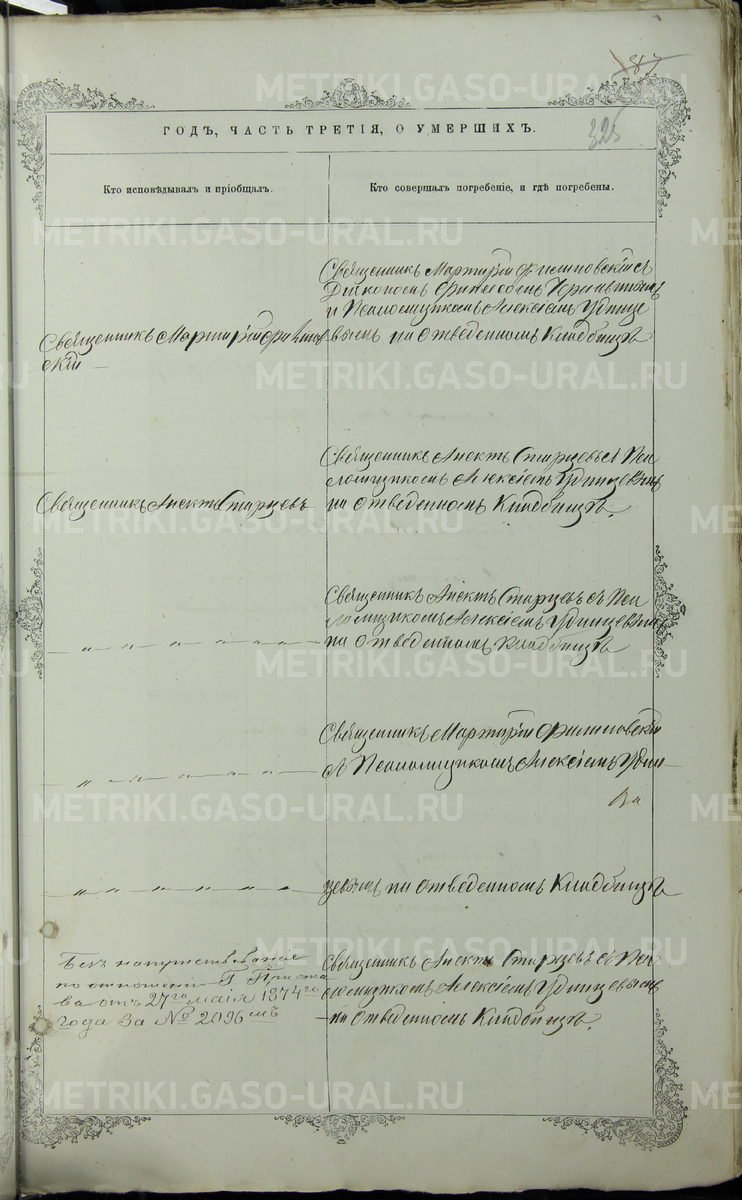 87
325
ГОДЪ, ЧАСТЬ ТРЕТІЯ, О УМЕРШИХЪ.
Кто исповѣдывалъ и пріобщалъ.
Кто совершалъ погребеніе, и гдѣ погребены.
Священникъ Мартирій Филиповскій
Священникъ Мартирій Филиповскій съ
Діякономъ
и Псаломщикомъ Алексіемъ Удинце
вымъ на Отведенномъ Кладбищѣ
Священникъ Анектъ Старцевъ
Священникъ Анектъ Старцевъ съ Пса
ломщикомъ Алексіемъ Удинцевымъ
на Отведенномъ Кладбищѣ.
— „ — „ — „ — „ — „ —
Священникъ Анектъ Старцевъ съ Пса
ломщикомъ Алексіемъ Удинцевымъ
на Отведенномъ Кладбищѣ
— „ — „ — „ — „ — „ —
Священникъ Мартирій Филиповскій
съ Псаломщикомъ Алексіемъ Удин
— „ — „ — „ — „ — „ —
цевымъ на Отведенномъ Кладбищѣ
Безъ напутствованія
по отношенію Г. Приста
ва отъ 27го маія 1874го
года за № 2096мъ
Священникъ Анектъ Старцевъ съ Пса
ломщикомъ Алексіемъ Удинцевымъ
на Отведенномъ Кладбищѣ.
METRIKI.GASO-URAL.RU